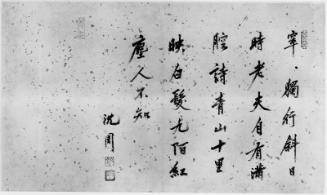 宰、獨行斜日
時老夫自有滿
腔詩青山十里
映白髮九陌紅
塵人不知
沈周